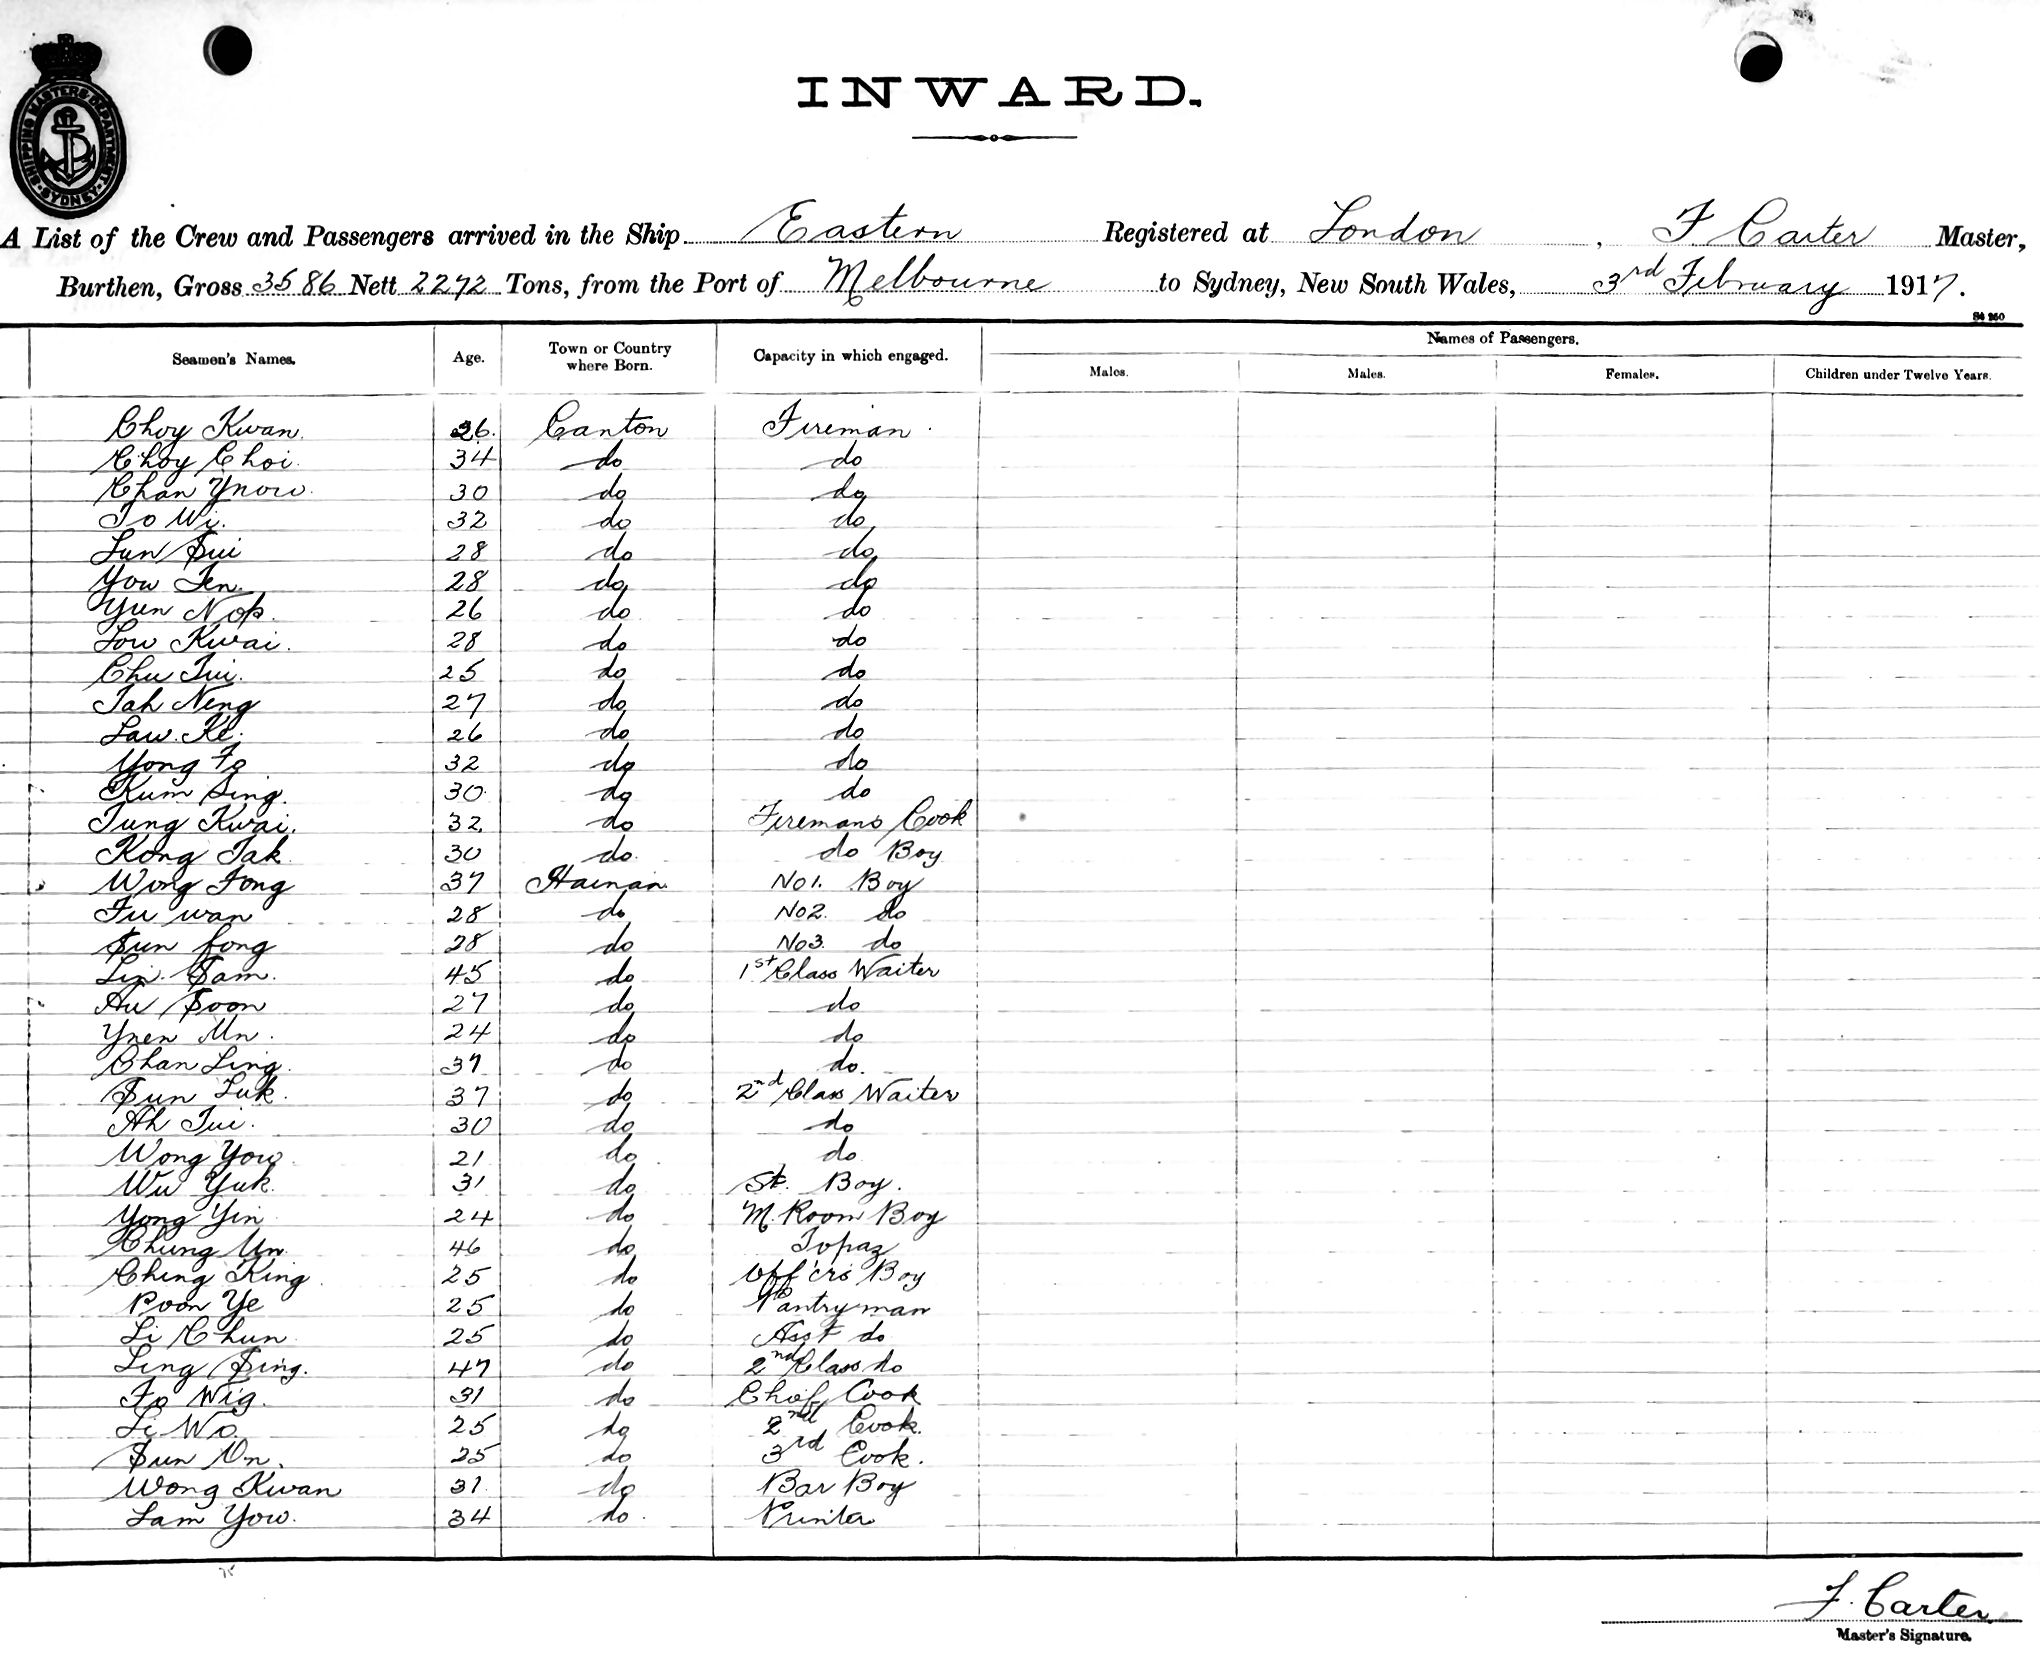 SHIPPING MASTERS DEPARTMENT
SYDNEY
INWARD.
A List of the Crew and Passengers arrived in the Ship Eastern Registered at London, F Carter Master,
Burthen, Gross 3586 Nett 2272 Tons, from the Port of Melbourne to Sydney, New South Wales, 3rd February 1917.
S4 250
Names of Passengers.
Seamen's Names. Age. Town or Country where Born. Capacity in which engaged. Males. Males. Females. Children under Twelve Years.
Choy Kwan. 26. Canton Fireman
Choy Choi. 34 do do
Chan 30 do do
To Wi. 32 do do
Lun Sui 28 do do
You 28 do do
Yuen Nop. 26 do do
Low Kwai. 28 do do
Chu Tui. 25 do do
Tah Neng 27 do do
Law Ke. 26 do do
Yong Fo 32 do do
Kum Sing. 30 do do
Tung Kwai. 32 do Firemans Cook
Kong Tak 30 do do Boy
Wong Fong 37 Hainan No1. Boy
Fu wan 28 do No2. do
Sun fong 28 do No3. do
Lin Sam. 45 do 1st Class Waiter
Au Soon 27 do do
Un. 24 do do
Chan Ling. 37 do do.
Sun Luk. 37 do 2nd Class Waiter
Ah Tui. 30 do do
Wong Yow 21 do do
Wu Yuk. 31 do St. Boy.
Yong Yin 24 do M. Room Boy
Chung Un. 46 do Topaz
Ching King 25 do Off'crs Boy
Poon Ye 25 do Pantryman
Li Chun 25 do Asst do
Ling Sing. 47 do 2nd Class do
Fo Wig. 31 do Chef Cook
Li Wo 25 do 2nd Cook.
Sun On. 25 do 3rd Cook.
Wong Kwan 31 do Bar Boy
Lam Yow. 34 do Printer
F. Carter
Master's Signature.